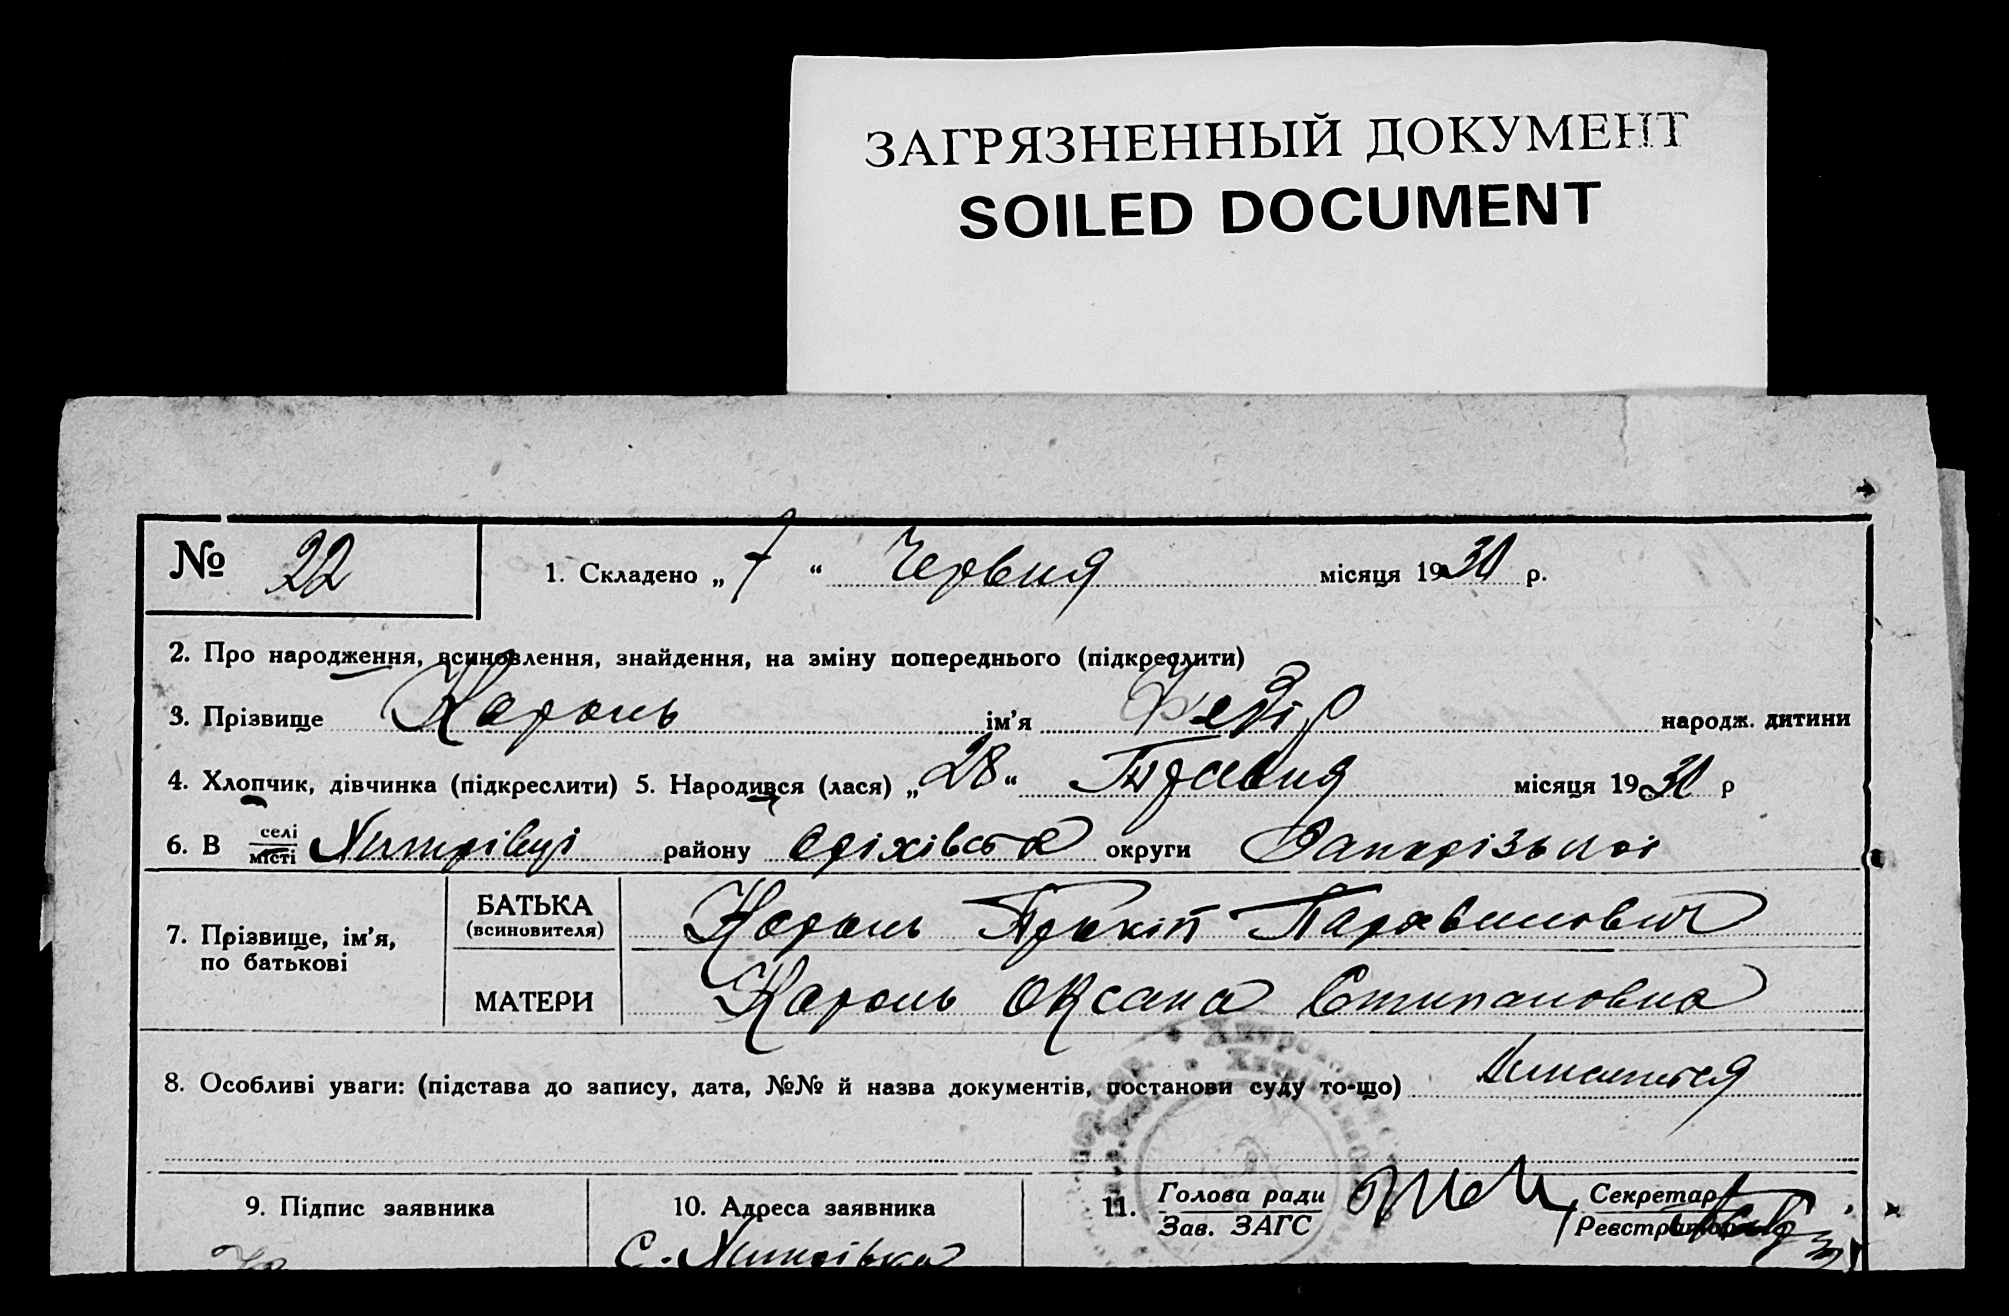 ЗАГРЯЗНЕННЫЙ ДОКУМЕНТ
SOILED DOCUMENT
№ 22
1. Складено „ 7 “ Червня місяця 1930 р.
2. Про народження, всиновлення, знайдення, на зміну попереднього (підкреслити)
3. Прізвище Король ім'я Федір народж. дитини
4. Хлопчик, дівчинка (підкреслити) 5. Народився (лася) „ 28 “ Травня місяця 1930 р
6. В селі місті Хитрівці району Оріхівськ округи Запорізької
7. Прізвище, ім'я, по батькові
БАТЬКА (всиновителя) Король Прокіп
МАТЕРИ Король Оксана Стипановна
8. Особливі уваги: (підстава до запису, дата, №№ й назва документів, постанови суду то-що)
9. Підпис заявника
10. Адреса заявника
С. Хитрівка
11. Голова ради
Зав. ЗАГС
Секретар
Реєстратор